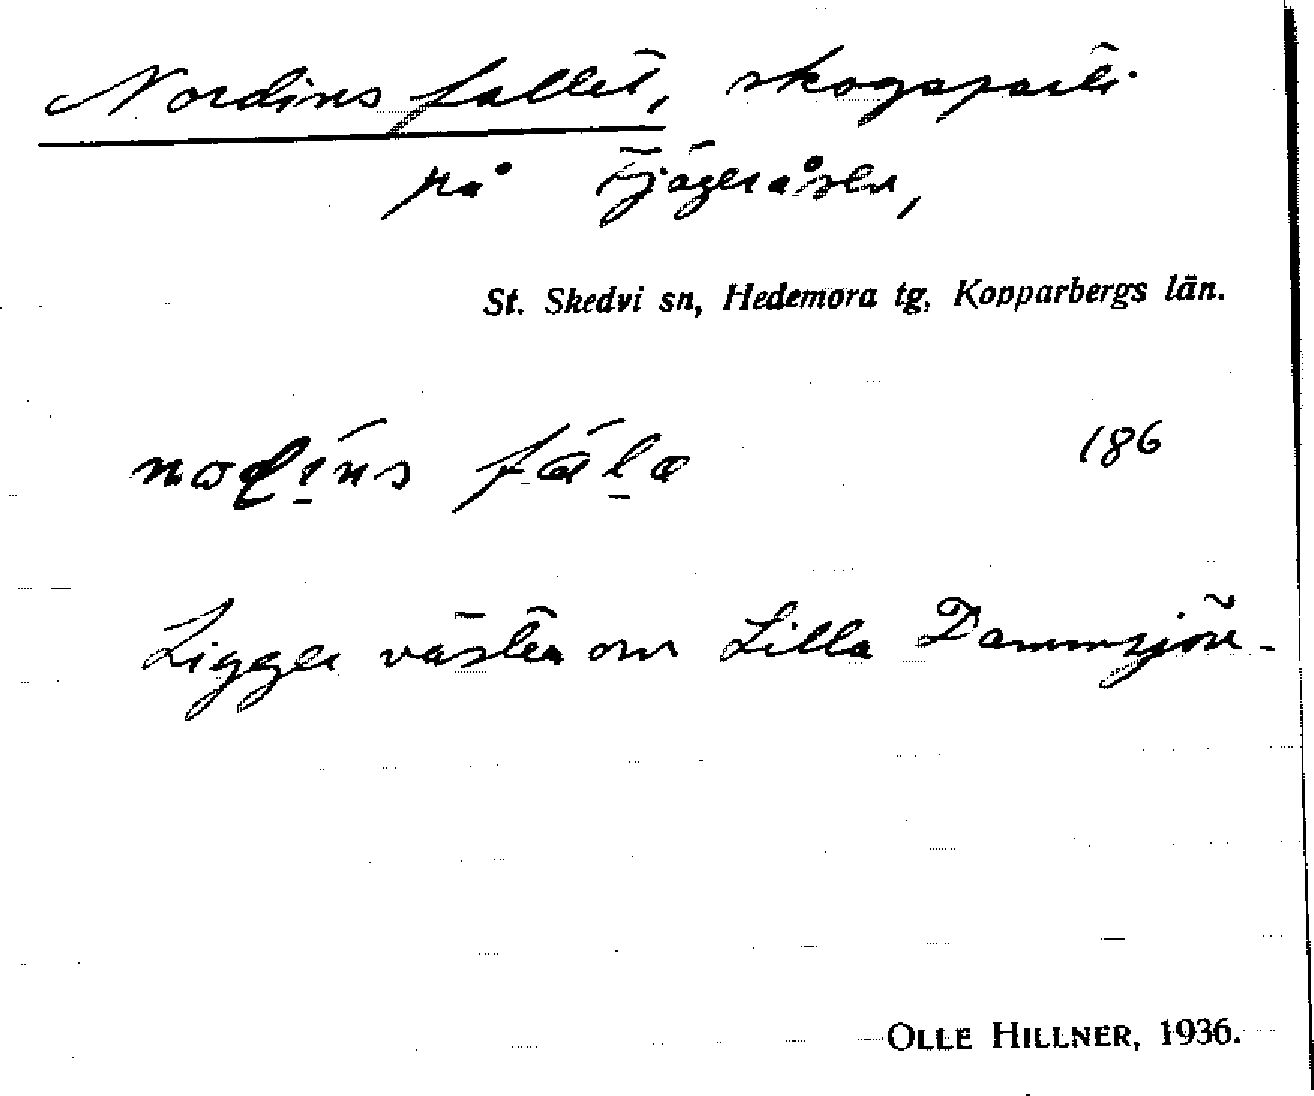 Nordinsfallet, skogsparti
på Tjägeråsen,
St. Skedvi sn, Hedemora tg, Kopparbergs län.
186
Ligger väster om Lilla Dammsjön.
OLLE HILLNER, 1936.